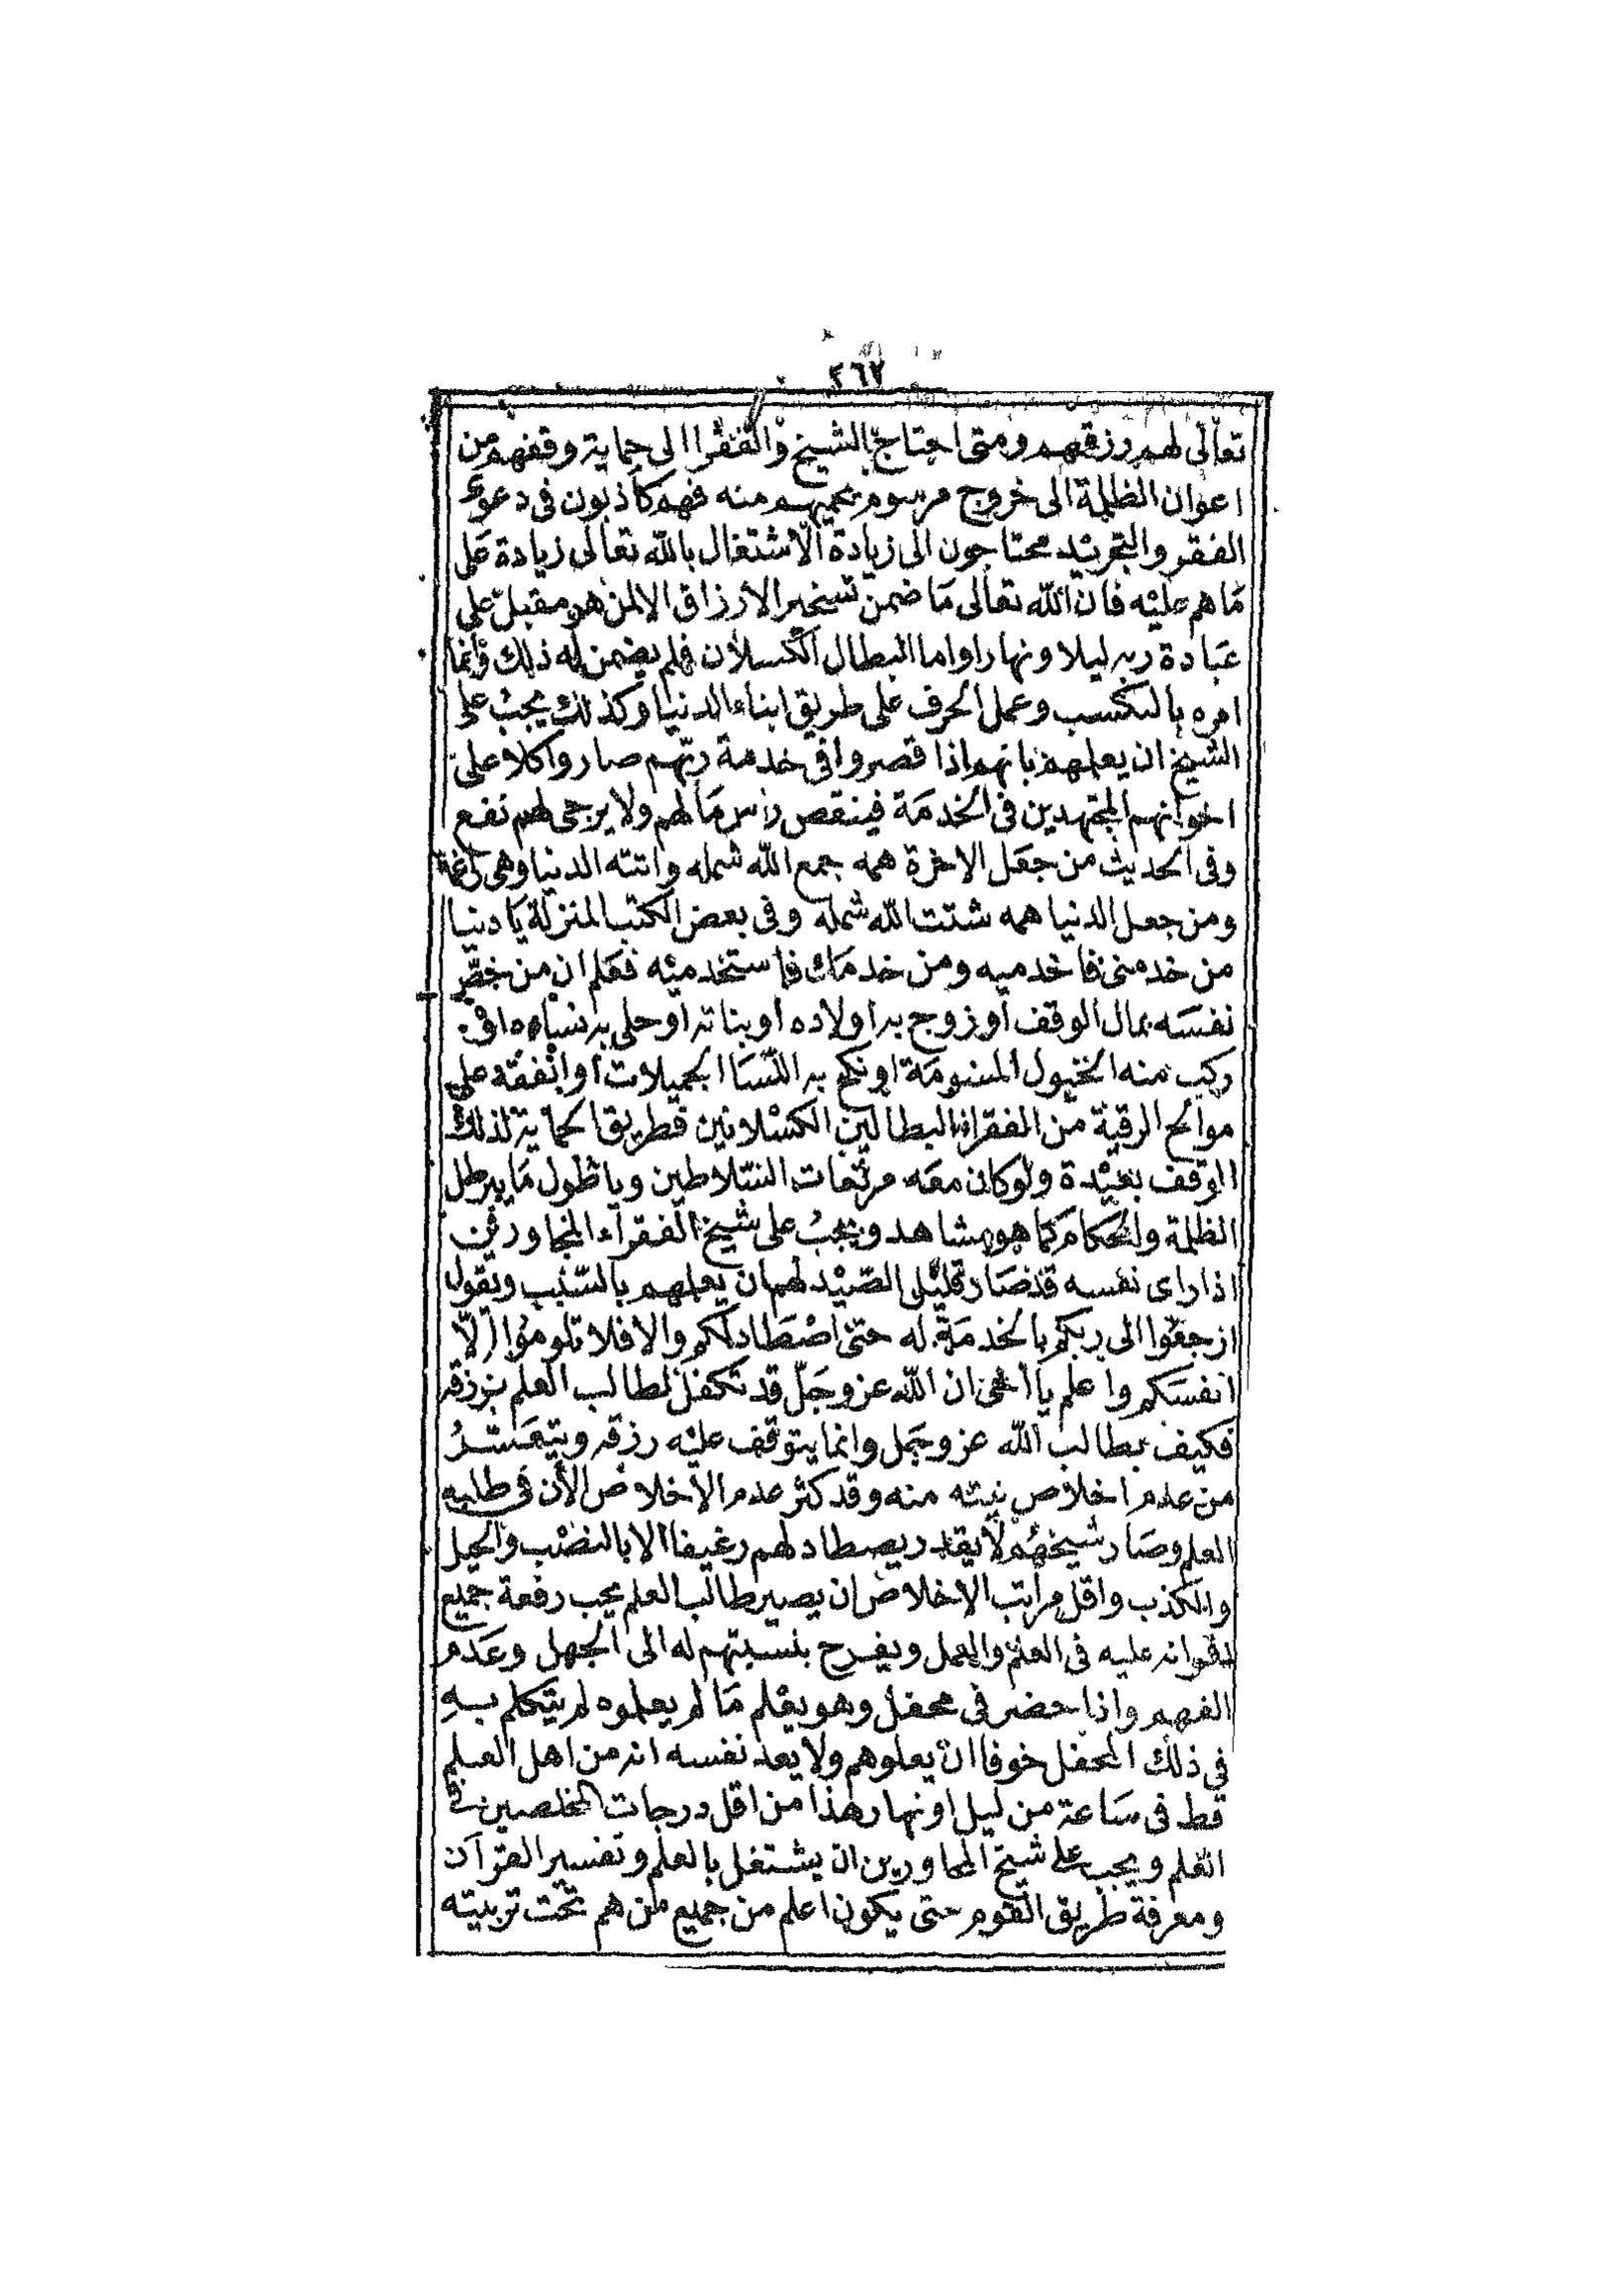 ٢٦٧
تعالى لهم رزقهم ومتى احتاج الشيخ والفقرا الى حماية وقفهم من
اعوان الظلمة الى خروج مرسوم يحميهم منه فهم كاذبون فى دعوى
الفقر والتجريد محتاجون الى زيادة الاشتغال بالله تعالى زيادة على
ما هم عليه فان الله تعالى ما ضمن تسخير الارزاق الا لمن هو مقبل على
عبادة ربه ليلا ونهارا واما البطال الكسلان فلم يضمن له ذلك وانما
امره بالتكسب وعمل الحرف على طريق ابناء الدنيا وكذلك يجب على
الشيخ ان يعلمهم بانهم اذا قصروا فى خدمة ربهم صاروا كلا على
اخوانهم المجتهدين فى الخدمة فينقص راس مالهم ولا يرجى لهم نفع
وفى الحديث من جعل الاخرة همه جمع الله شمله واتته الدنيا وهى راغمة
ومن جعل الدنيا همه شتت الله شمله وفى بعض الكتب المنزلة يا دنيا
من خدمنى فاخدميه ومن خدمك فاستخدميه فعلم ان من خص
نفسه بمال الوقف أو زوج به أولاده أو بناته أو حلى به نساءه او
ركب منه الخيول المسومة او نكح به النسا الجميلات أو انفقه على
موالح الرقبة من الفقراء البطالين الكسلانين فطريق حماية لذلك
الوقف بعيدة ولو كان معه مربعات السلاطين ويا طول ما يبرطل
الظلمة والحكام كما هو مشاهد ويجب على شيخ الفقراء المجاورين
اذا راى نفسه قد صار قليل الصيد لهم ان يعلمهم بالسبب ويقول
ارجعوا الى ربكم بالخدمة له حتى اصطاد لكم والا فلا تلوموا الا
انفسكم واعلم يا أخى ان الله عز وجل قد تكفل لطالب العلم برزقه
فكيف بطالب الله عز وجل وانما يتوقف عليه رزقه ويتعسر
من عدم اخلاص نيته منه وقد كثر عدم الاخلاص الأن فى طلبه
العلم وصار شيخهم لا يقدر يصطاد لهم رغيفا الا بالنصب والحيل
والكذب واقل مراتب الاخلاص ان يصير طالب العلم يحب رفعة جميع
اقرانه عليه فى العلم والعمل ويفرح بنسبتهم له الى الجهل وعدم
الفهم واذا حضر فى محفل وهو يعلم ما لم يعلموه لم يتكلم به
فى ذلك المحفل خوفا ان يعلوهم ولا يعد نفسه انه من اهل العلم
قط فى ساعة من ليل او نهار هذا من اقل درجات المخلصين فى
العلم ويجب على شيخ المجاورين ان يشتغل بالعلم وتفسير القرآن
ومعرفة طريق القوم حتى يكون اعلم من جميع من هم تحت تربيته